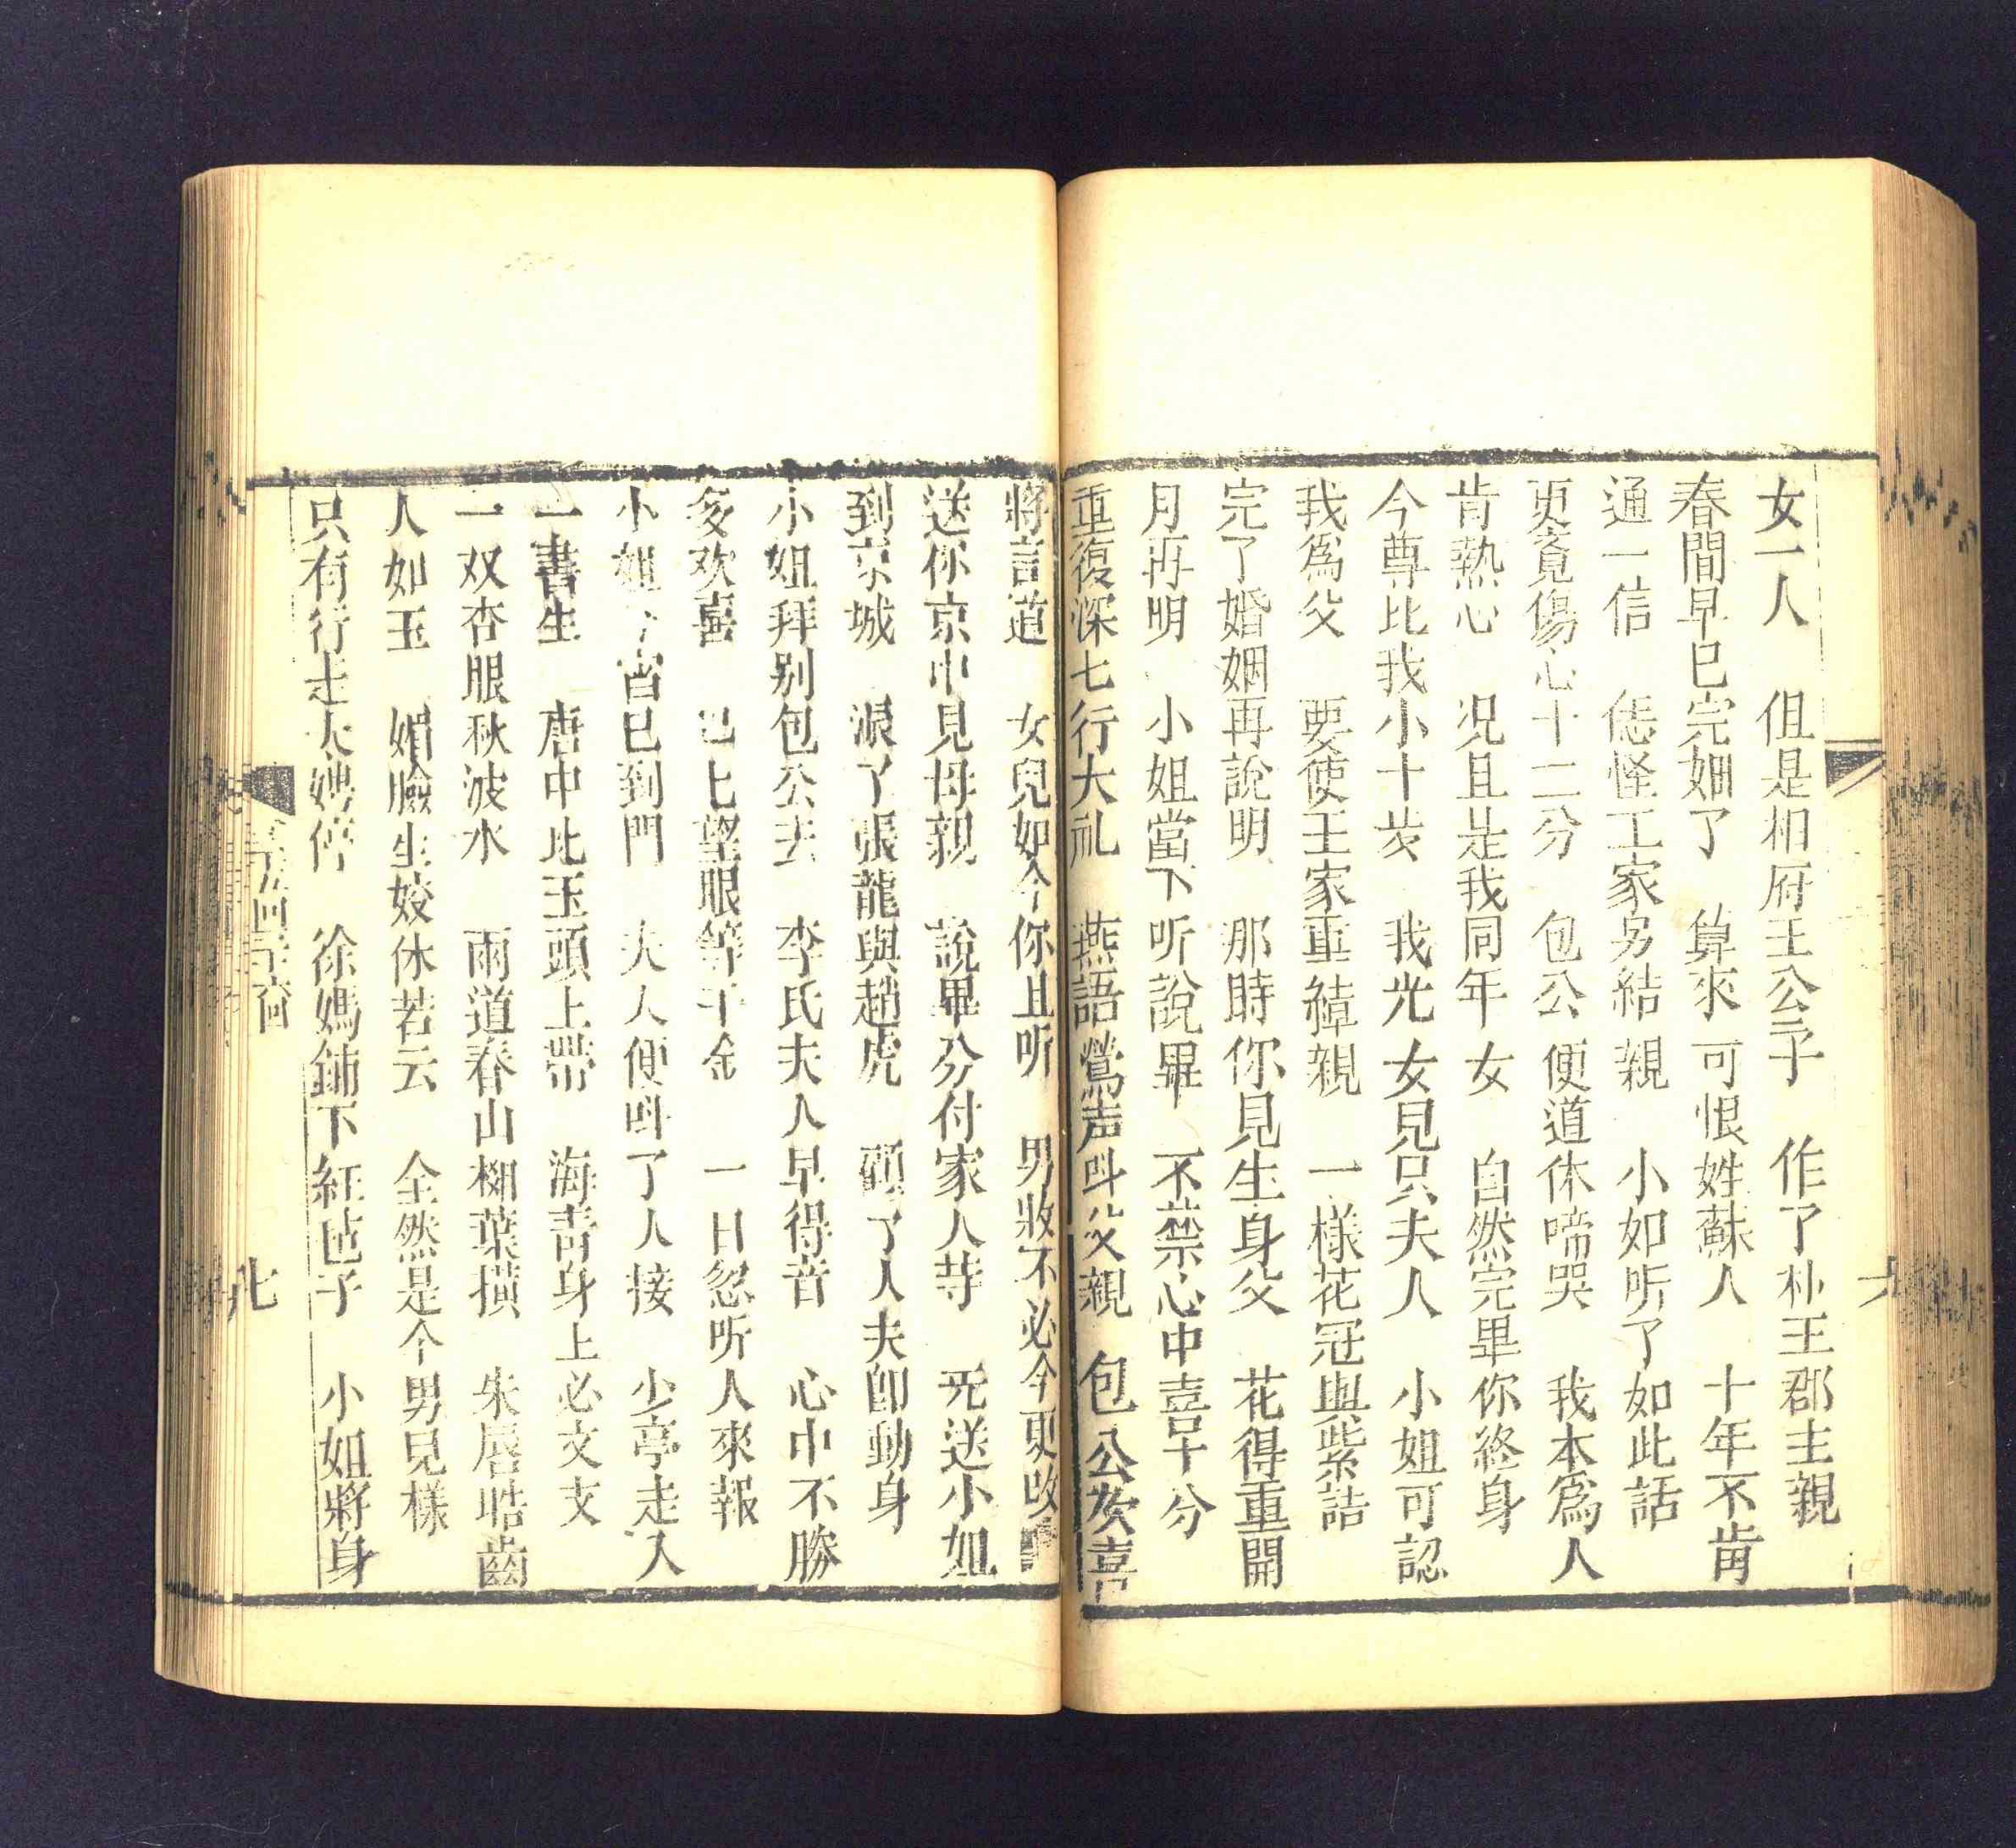 女一人　但是相府王公子　作了朴王郡主親
春間早已完姻了　算來可恨姓蘇人　十年不肯
通一信　恁怪王家另結親　小如听了如此話
更覔傷心十二分　包公便道休啼哭　我本爲人
肯熱心　况且是我同年女　自然完畢你終身
今尊比我小十岁　我光女兒只夫人　小姐可認
我爲父　要使王家重結親　一樣花冠與紫誥
完了婚姻再說明　那時你見生身父　花得重開
月再明　小姐當下听說畢　不禁心中喜十分
重復深七行大礼　燕語鶯声呌父親　包公欢喜
將言道　女兒如今你且听　男妝不必今更改
送你京中見母親　說畢分付家人等　送小姐
到京城　派了張龍與趙虎　顧了人夫卽動身
小姐拜别包公去　李氏夫人早得音　心中不勝
多欢喜　巴七望眼等千金　一日忽听人來報
小姐　已到門　夫人便呌了人接　少亭走入
一書生　唐中比玉頭上帶　海青身上必文支
一双杏眼秋波水　雨道春山柳葉横　朱唇皓齒
人如玉　媚臉生姣休若云　全然是个男兒樣
只有行走大娉停　徐媽鋪下紅毡子　小姐將身